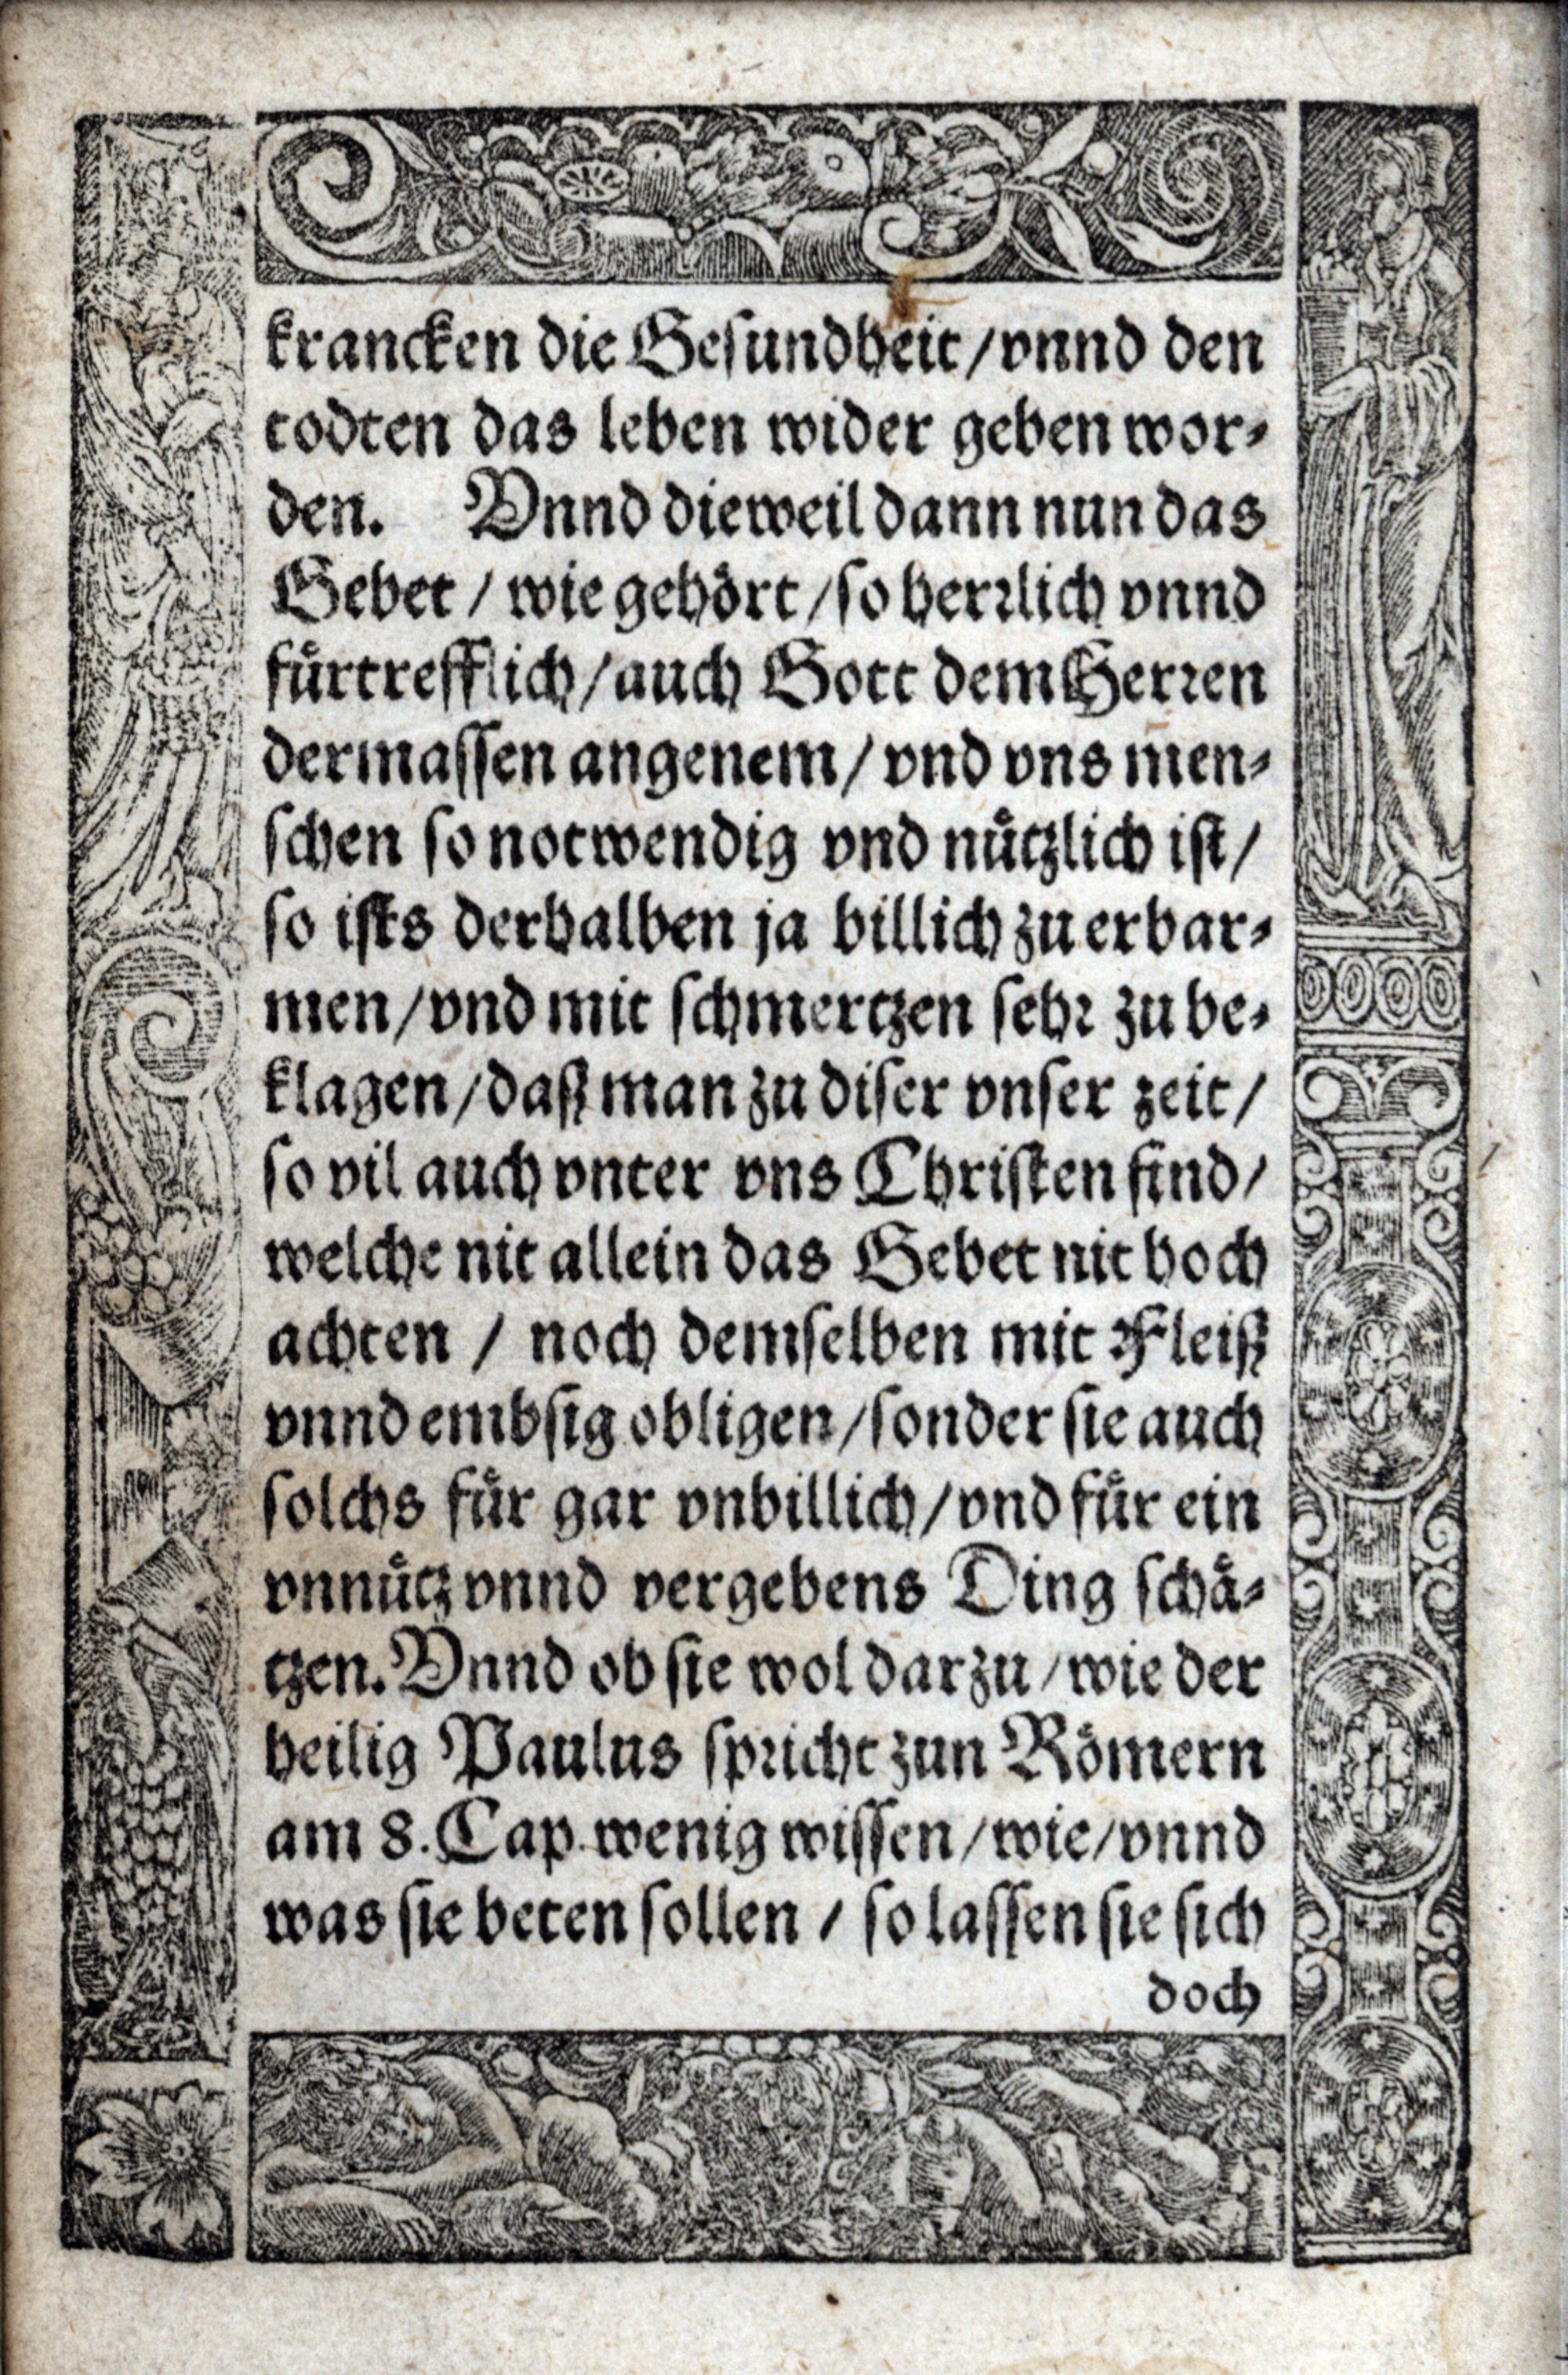 krancken die Gesundheit/vnnd den
todten das leben wider geben wor⸗
den. Vnnd dieweil dann nun das
Gebet / wie gehoͤrt /so herrlich vnnd
fuͤrtrefflich/auch Gott dem Herren
dermassen angenem/vnd vns men⸗
schen so notwendig vnd nuͤtzlich ist/
so ists derhalben ja billich zu erbar⸗
men/vnd mit schmertzen sehr zu be⸗
klagen/daß man zu diser vnser zeit/
so vil auch vnter vns Christen find/
welche nit allein das Gebet nit hoch
achten / noch demselben mit Fleiß
vnnd embsig obligen/sonder sie auch
solchs fuͤr gar vnbillich/vnd fuͤr ein
vnnuͤtz vnnd vergebens Ding schaͤ⸗
tzen. Vnnd ob sie wol darzu/wie der
heilig Paulus spricht zun Roͤmern
am 8. Cap. wenig wissen/wie/vnnd
was sie beten sollen / so lassen sie sich
doch